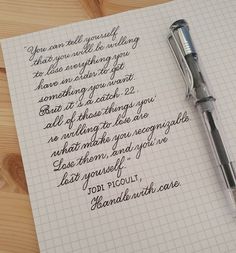 "You can tell yourself
that you will be willing
to lose everything you
have in order to get
something you want.
But it's a catch-22:
all of those things you'
re willing to lose are
what make you recognizable.
Lose them, and you've
lost yourself."
JODI PICOULT,
Handle with care.